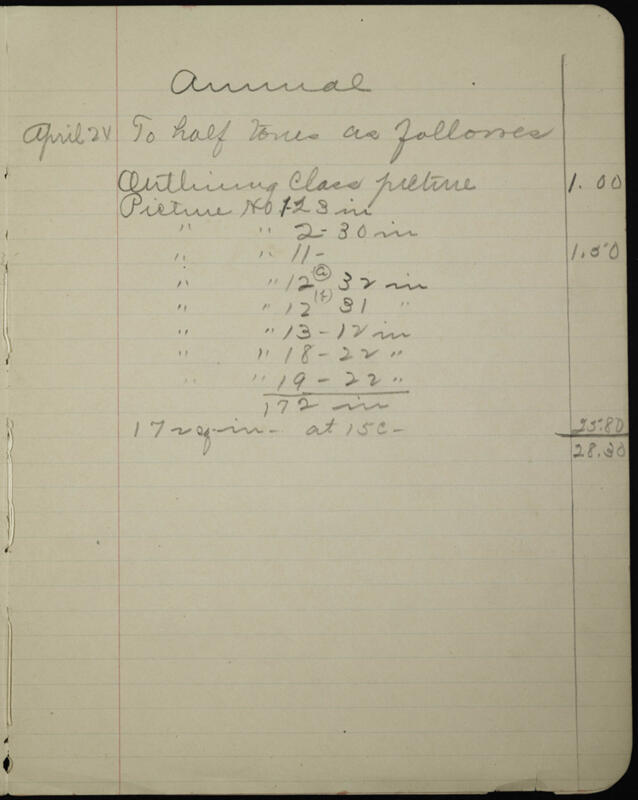 Annual
April 24 To half tones as follows
Outlining Class picture 1.00
Picture No 1-23 in
" " 2-30 in
" " 11- 1.50
" " 12 (a) 32 in
" " 12 (b) 31 "
" " 13-12 in
" " 18-22 "
" " 19-22 "
172 in
172 sq in- at 15c- 25.80
28.30